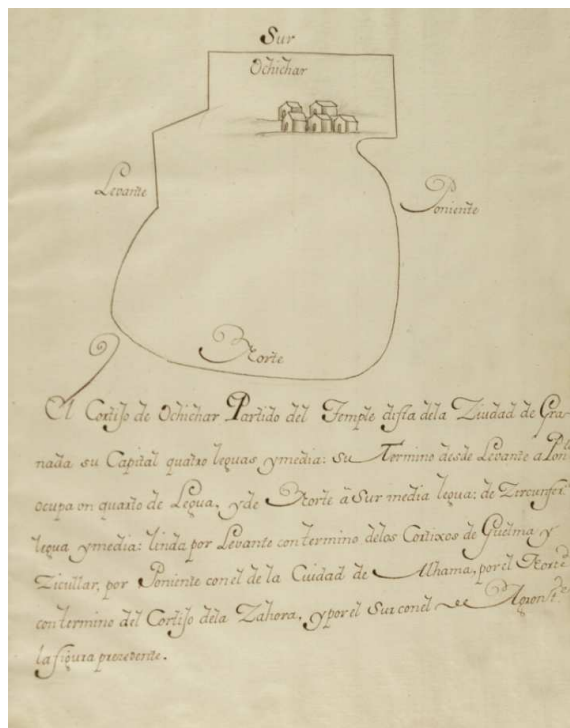 Sur
Ochichar
Levante
Poniente
Norte
El Cortijo de Ochichar Partido del Temple dista dela Ziudad de Gra-
nada su Capital quatro leguas ymedia: su Termino desde Levante a Pon.te
ocupa un quarto de Legua, yde Norte a Sur media legua: de Zircunfer.
legua ymedia: linda por Levante con termino delos Cortixos de Guelma y
Zicullar, por Poniente conel de la Ciudad de Alhama, por el Norte
con termino del Cortijo dela Zahora, y por el Sur conel de
la figura prezedente.